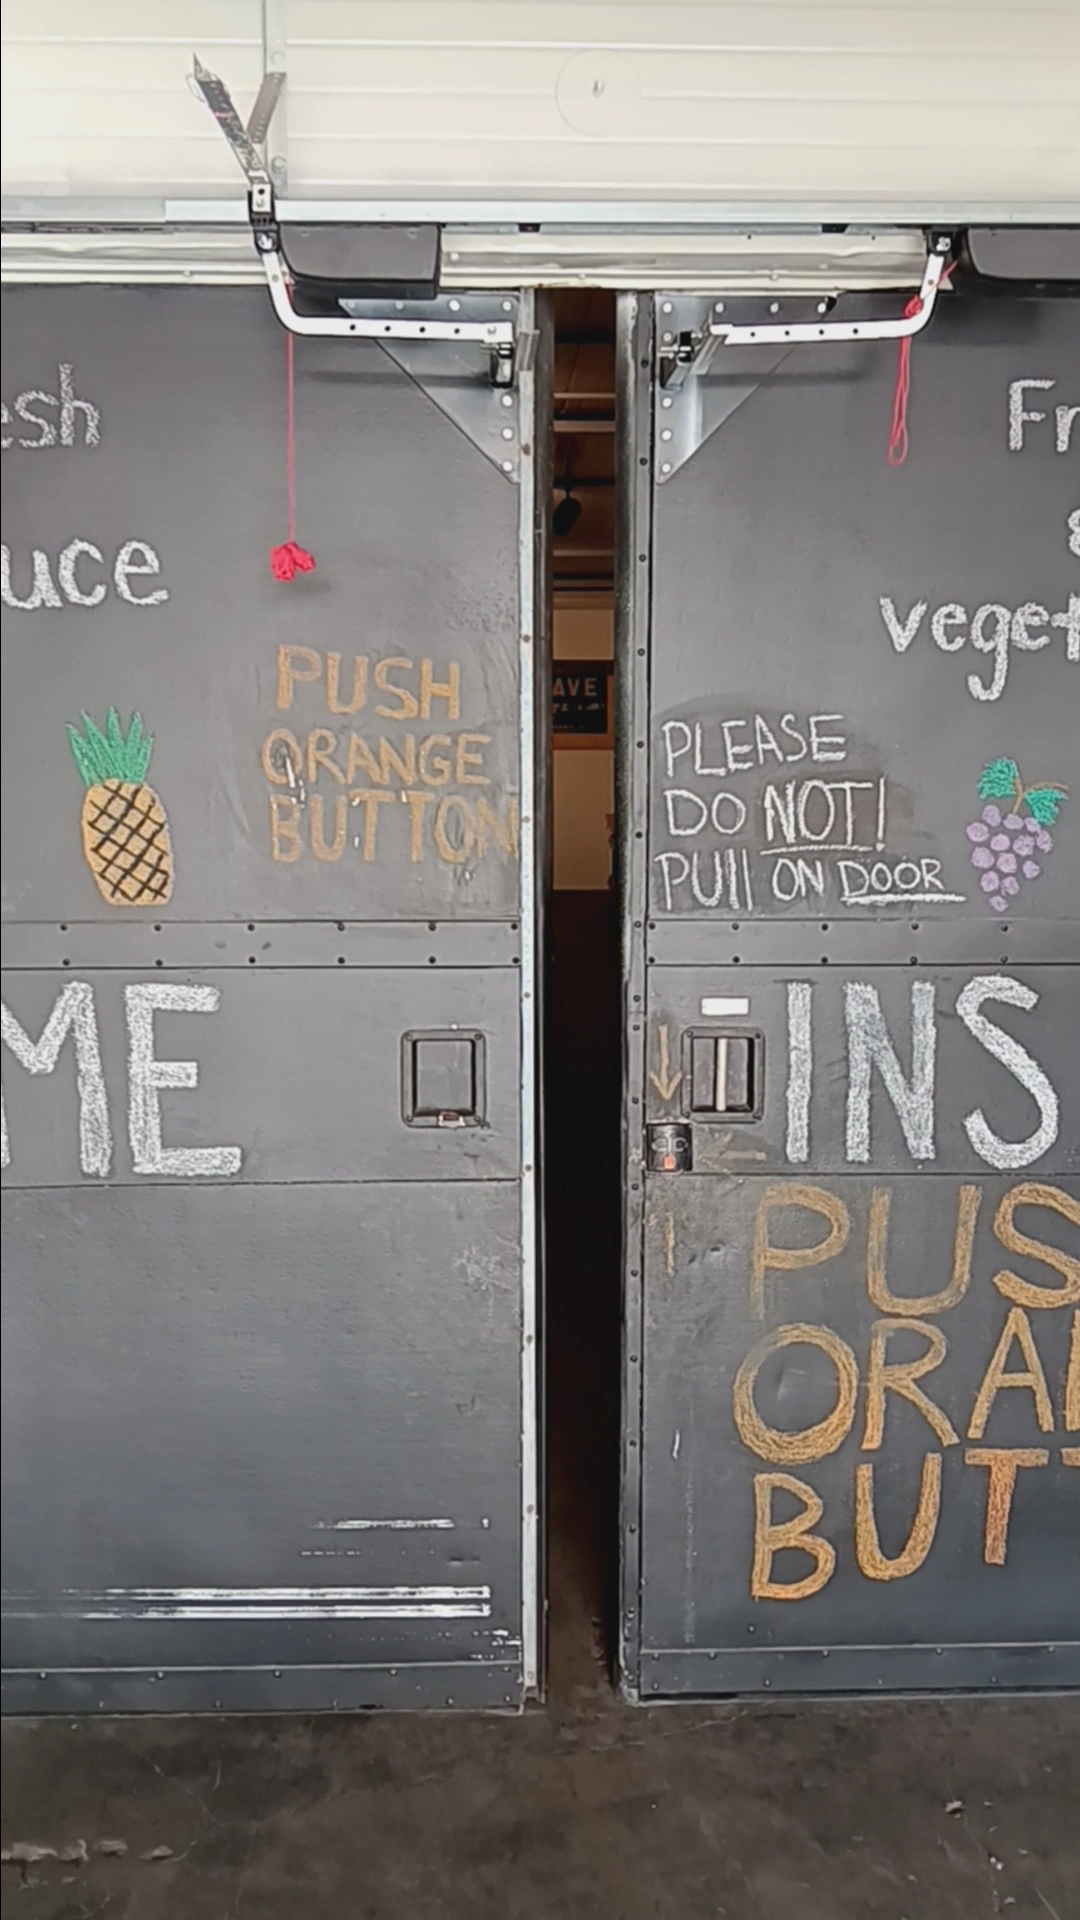 esh
uce
PUSH
ORANGE
BUTTON
ME
AVE
Fr
&
veget
PLEASE
DO NOT!
PUll ON DOOR
INS
PUS
ORA
BUT